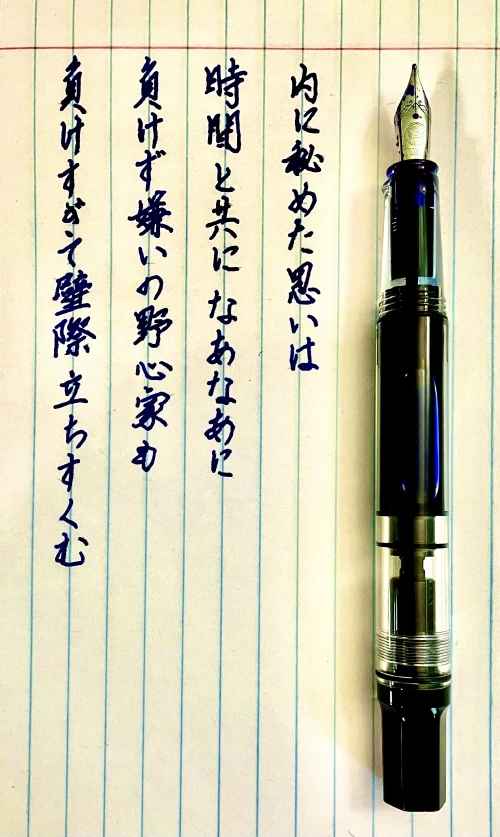 内に秘めた思いは
時間と共に なあなあに
負けず嫌いの野心家も
負けすぎて壁際 立ちすくむ